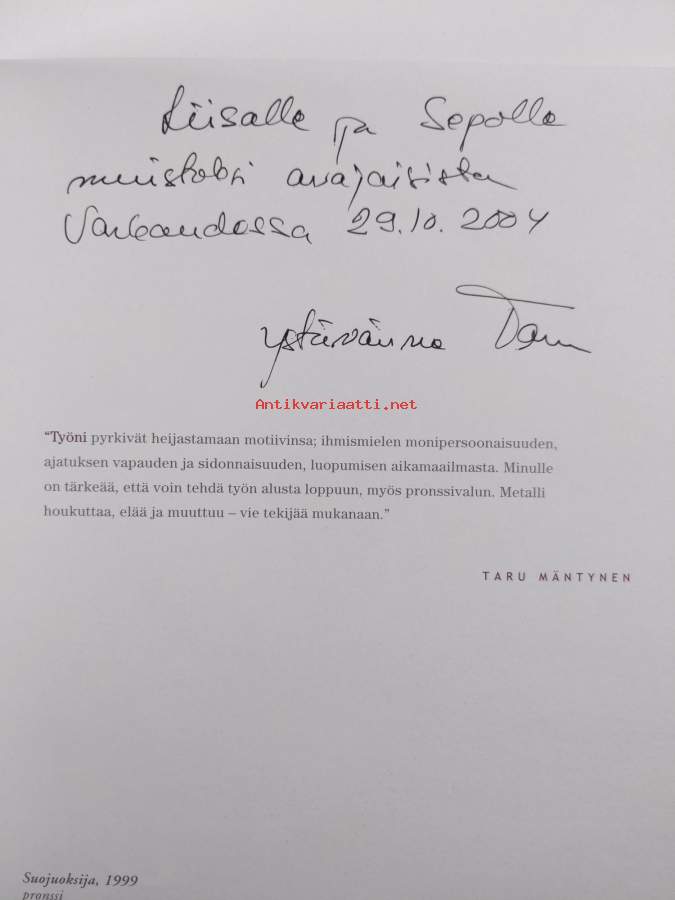 Liisalle ja Sepolle
muistoksi avajaisista
Varkaudessa 29.10.2004
ystävänne Taru
Antikvariaatti.net
“Työni pyrkivät heijastamaan motiivinsa; ihmismielen monipersoonaisuuden,
ajatuksen vapauden ja sidonnaisuuden, luopumisen aikamaailmasta. Minulle
on tärkeää, että voin tehdä työn alusta loppuun, myös pronssivalun. Metalli
houkuttaa, elää ja muuttuu – vie tekijää mukanaan.”
TARU MÄNTYNEN
Suojuoksija, 1999
pronssi